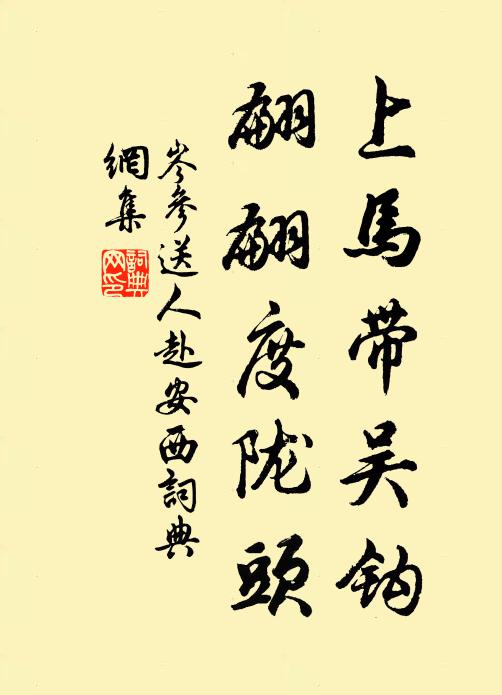 上馬带吴钩
翩翩度陇頭
岑參送人赴安西詞典
網集
詞典
网印